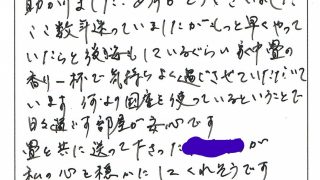 助かりました。ありがとうございました
ここ数年迷っていましたがもっと早くやって
いたらと後悔もしているぐらい 家中畳の
香り一杯で気持ちよく過ごさせていただいて
います 何より国産を使っているということで
日々過ごす部屋が安心です
畳と共に送って下さった が
私の心を穏かにしてくれそうです